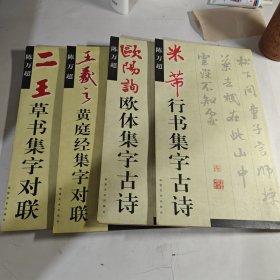 陈万超
二王
草书集字对联
陈万超
王羲之
黄庭经集字对联
陈万超
歐陽詢
欧体集字古诗
陈万超
米芾
行书集字古诗
松下问童子言师採
药去只在此山中
云深不知处